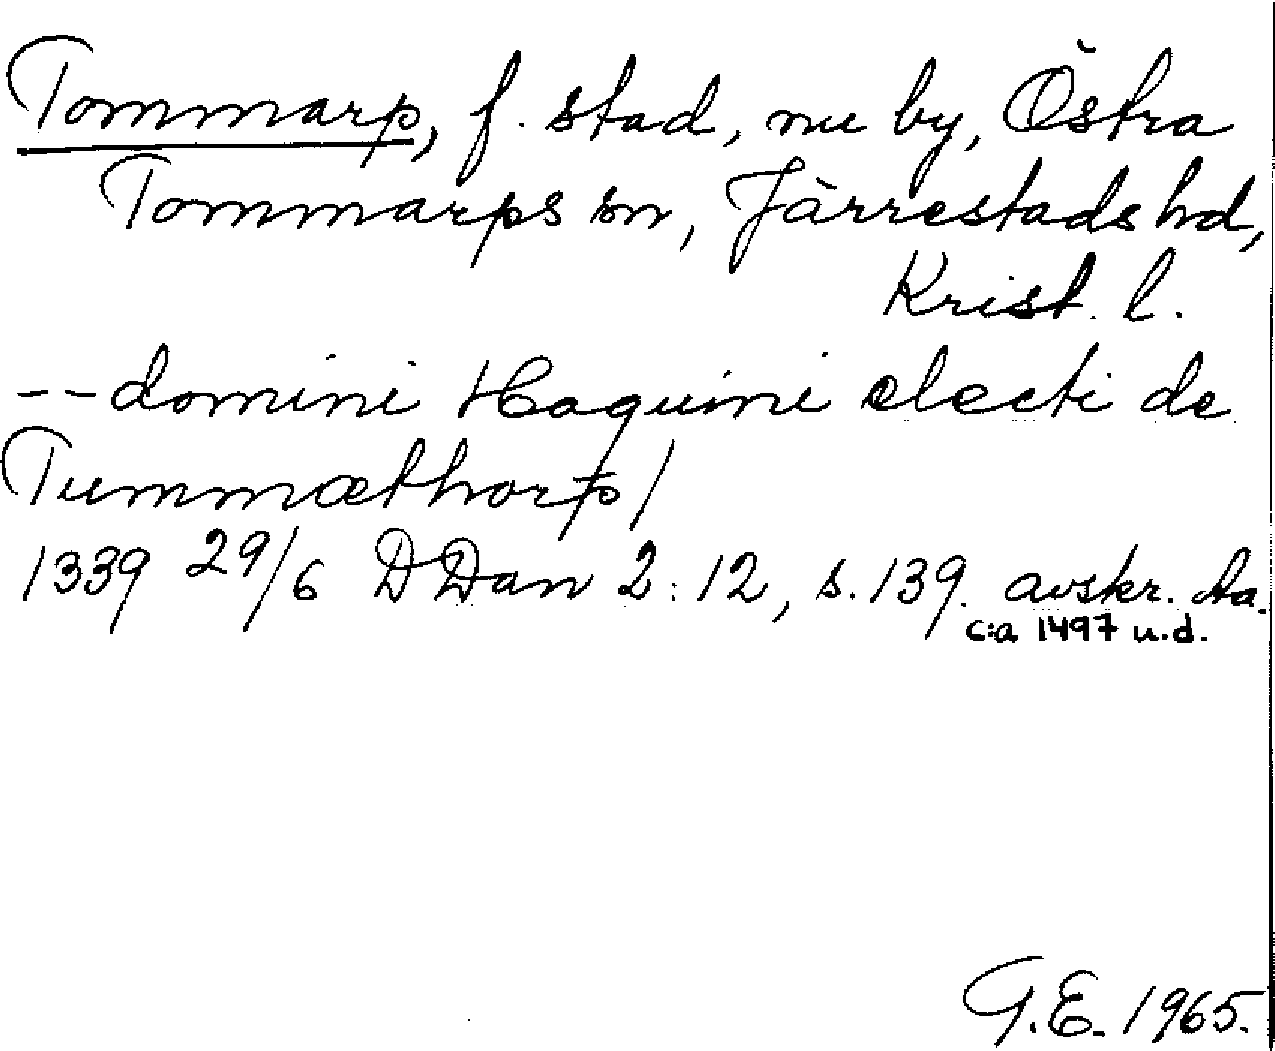 Tommarp, f. stad, nu by, Östra
Tommarps sn, Järrestads hd,
Krist. l.
-- domini Haquini electi de
Tummæthorp/
1339 29/6 DDan 2:12, s. 139. avskr. Aa.
c:a 1497 u.d.
G.E. 1965.